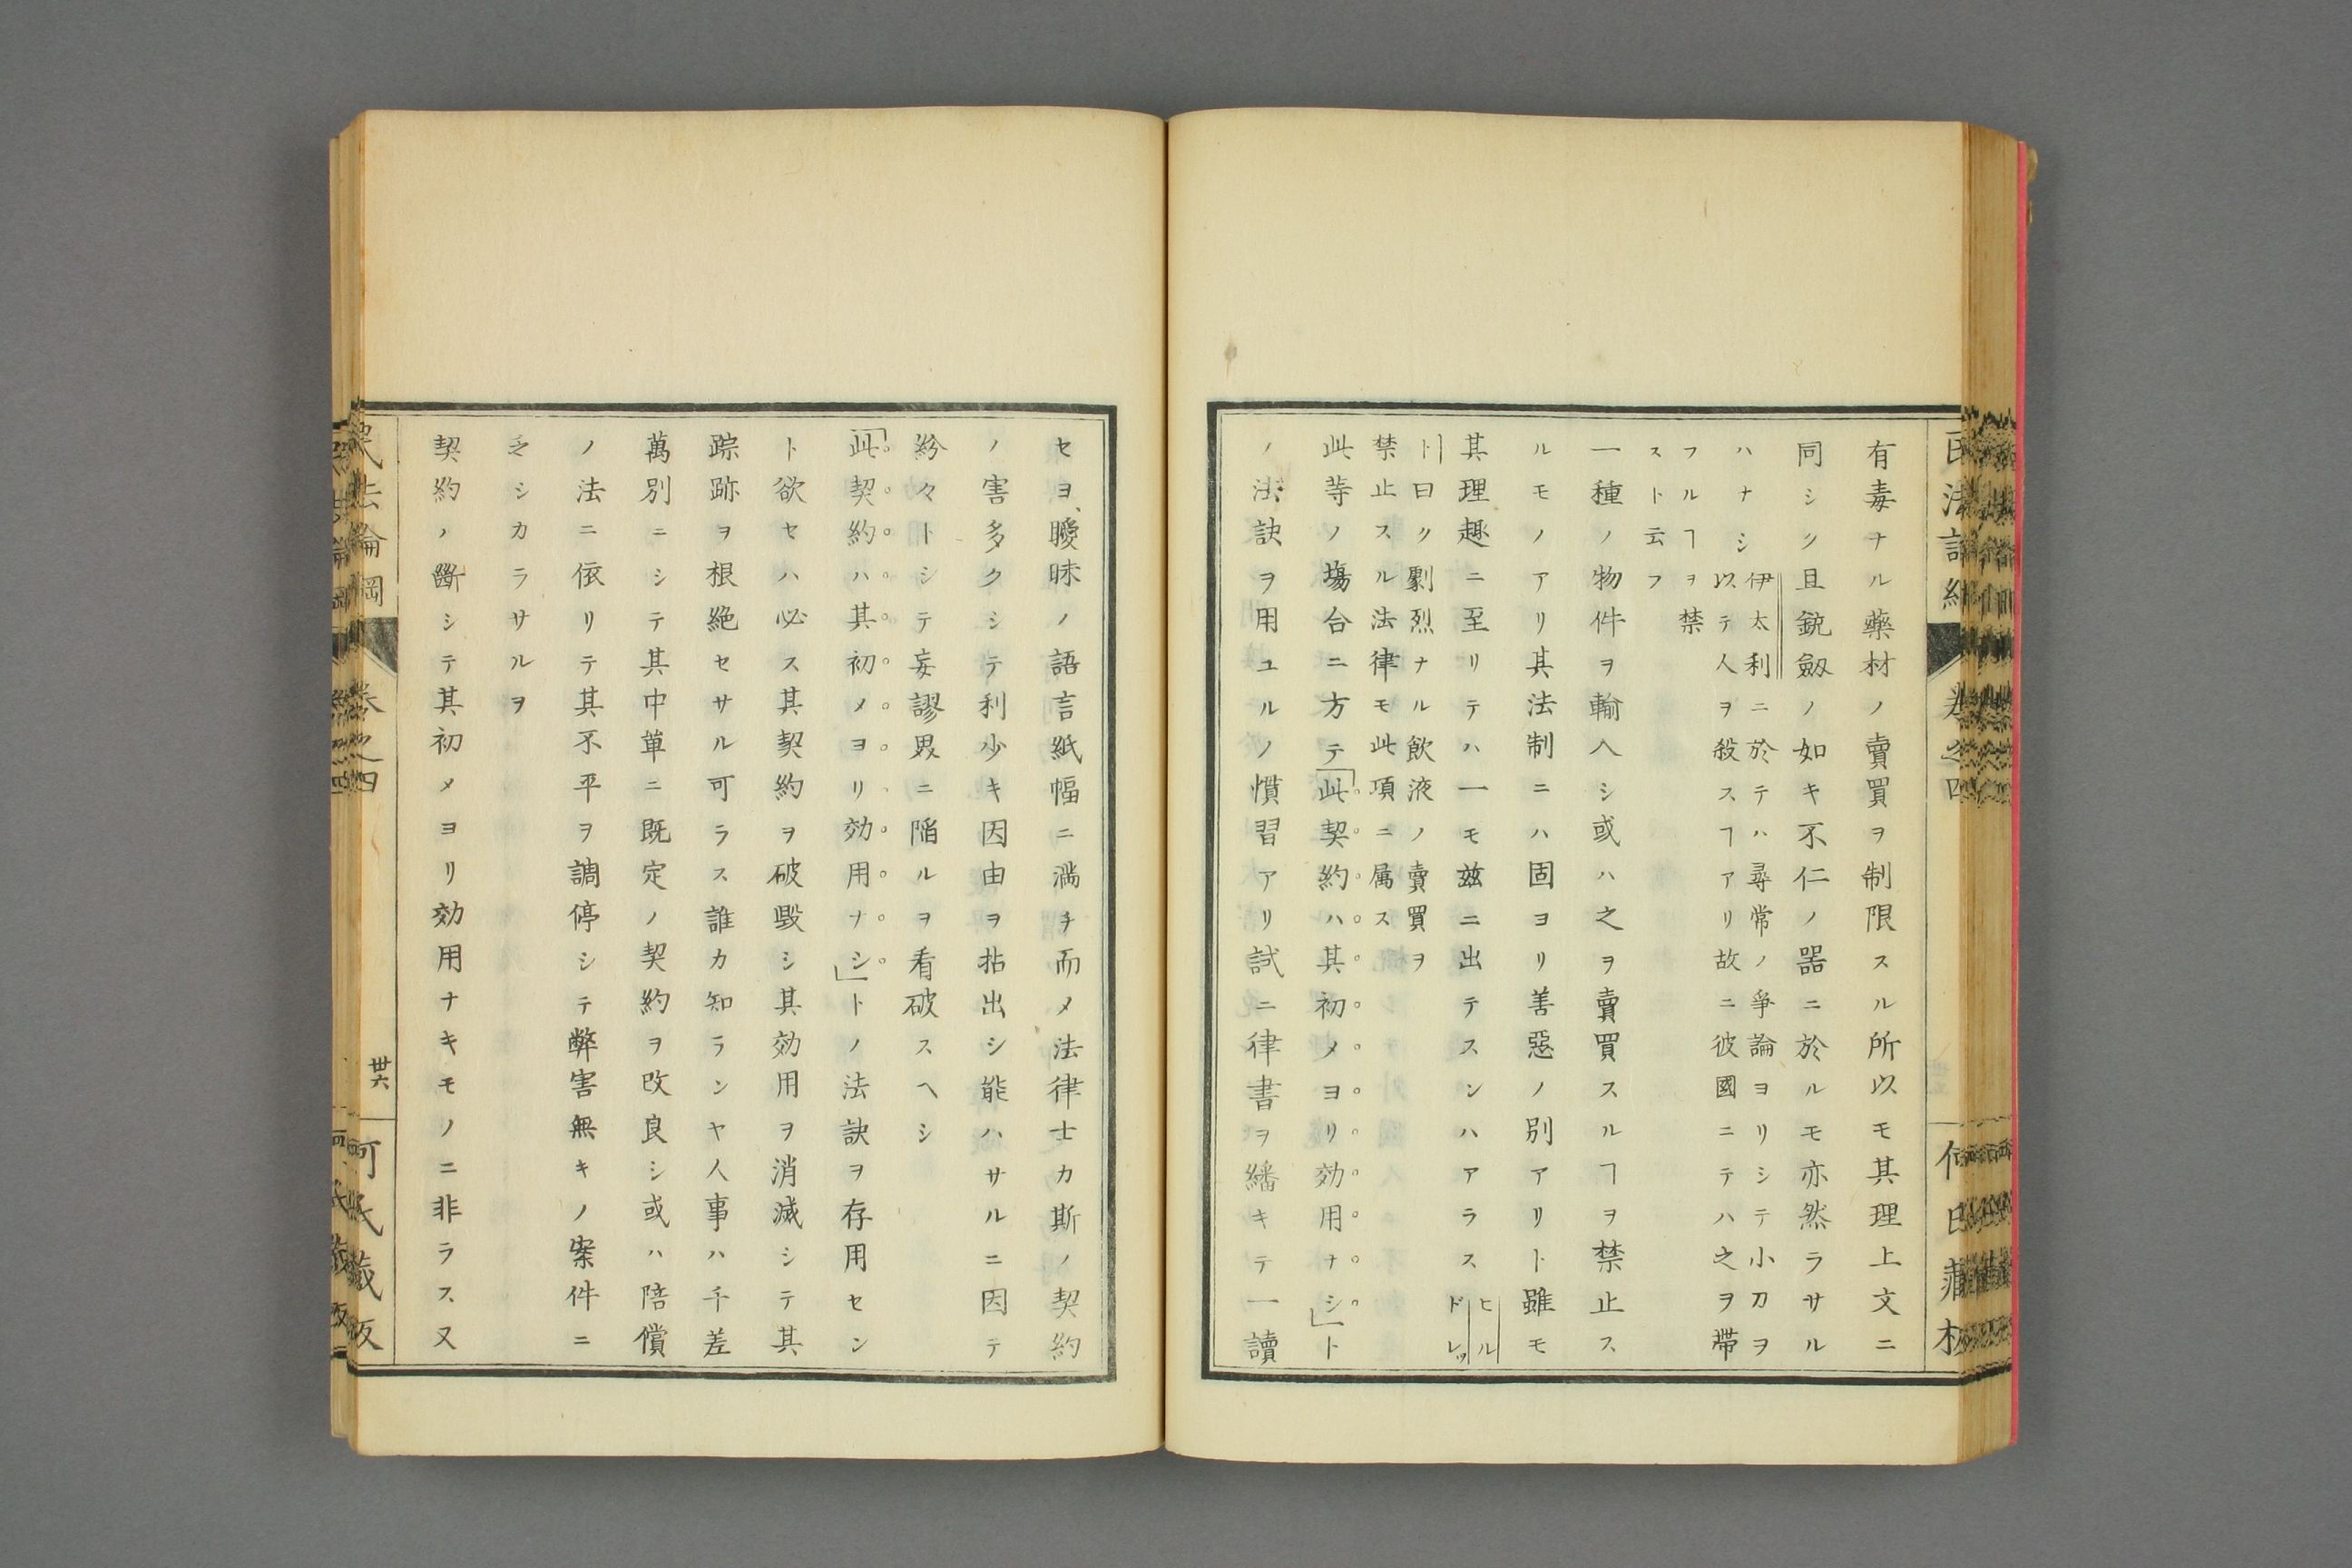 有毒ナル藥材ノ賣買ヲ制限スル所以モ其理上文ニ
同シク且銃劔ノ如キ不仁ノ器ニ於ルモ亦然ラサル
ハナシ
伊太利ニ於テハ尋常ノ爭論ヨリシテ小刀ヲ
以テ人ヲ殺スヿアリ故ニ彼國ニテハ之ヲ帶
フルヿヲ禁
スト云フ
一種ノ物件ヲ輸入シ或ハ之ヲ賣買スルヿヲ禁止ス
ルモノアリ其法制ニハ固ヨリ善惡ノ別アリト雖モ
其理趣ニ至リテハ一モ茲ニ出テスンハアラス
ヒル
ドレッ
ト曰ク劇烈ナル飲液ノ賣買ヲ
禁止スル法律モ此項ニ属ス
此等ノ塲合ニ方テ「此契約ハ其初メヨリ効用ナシ」ト
ノ法訣ヲ用ユルノ慣習アリ試ニ律書ヲ繙キテ一讀
セヨ、曖昧ノ語言紙幅ニ滿チ而メ法律士カ斯ノ契約
ノ害多クシテ利少キ因由ヲ拈出シ能ハサルニ因テ
紛々トシテ妄謬界ニ陷ルヲ看破スヘシ
「此契約ハ其初メヨリ効用ナシ」トノ法訣ヲ存用セン
ト欲セハ必ス其契約ヲ破毀シ其効用ヲ消滅シテ其
踪跡ヲ根絶セサル可ラス誰カ知ランヤ人事ハ千差
萬別ニシテ其中單ニ既定ノ契約ヲ改良シ或ハ陪償
ノ法ニ依リテ其不平ヲ調停シテ弊害無キノ案件ニ
乏シカラサルヲ
契約ノ斷シテ其初メヨリ効用ナキモノニ非ラス又
民法論綱
卷之四
丗六
何氏藏板